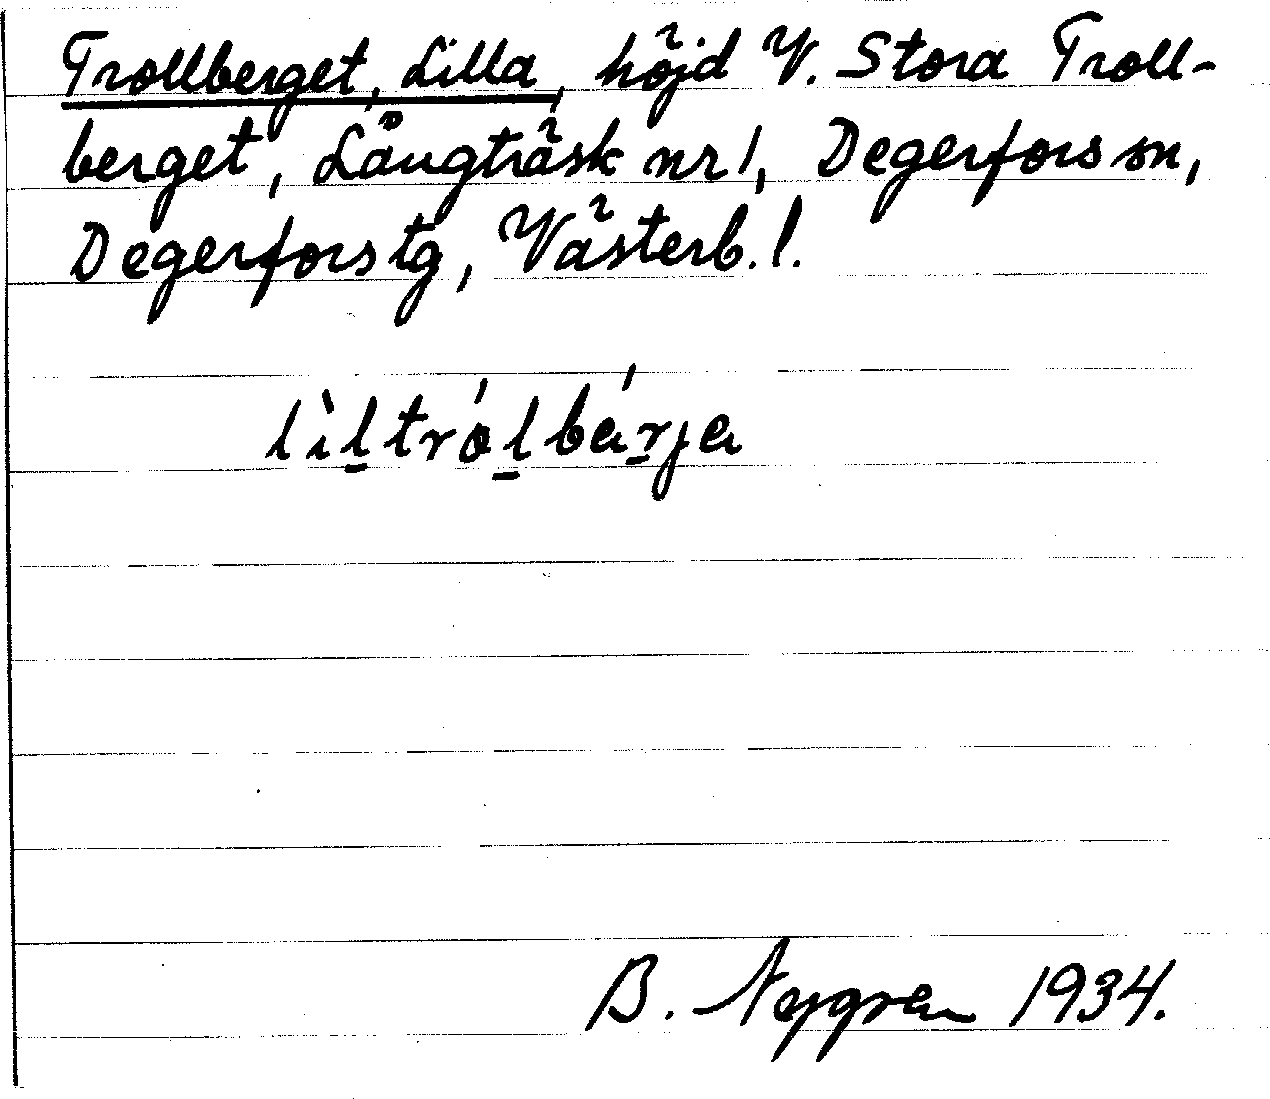 Trollberget, Lilla, höjd V. Stora Troll-
berget, Långträsk nr 1, Degerfors sn,
Degerfors tg, Västerb. l.
lìl̲tról̲bár̲ja
B. Nygren 1934.